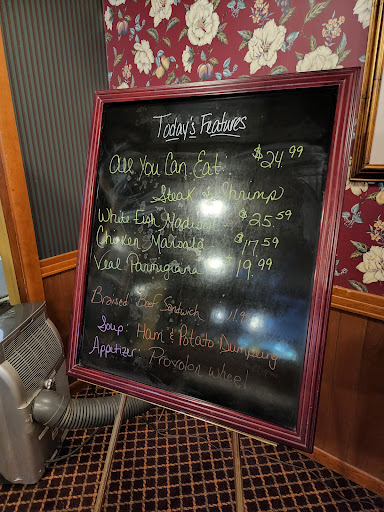 Today's Features
All You Can Eat: $24.99
Steak & Shrimp
White Fish $25.59
Chicken Marsala $17.59
Veal Parmigiana $19.99
Braised Beef Sandwich
Soup: Ham & Potato Dumpling
Appetizer: Provolon Wheel